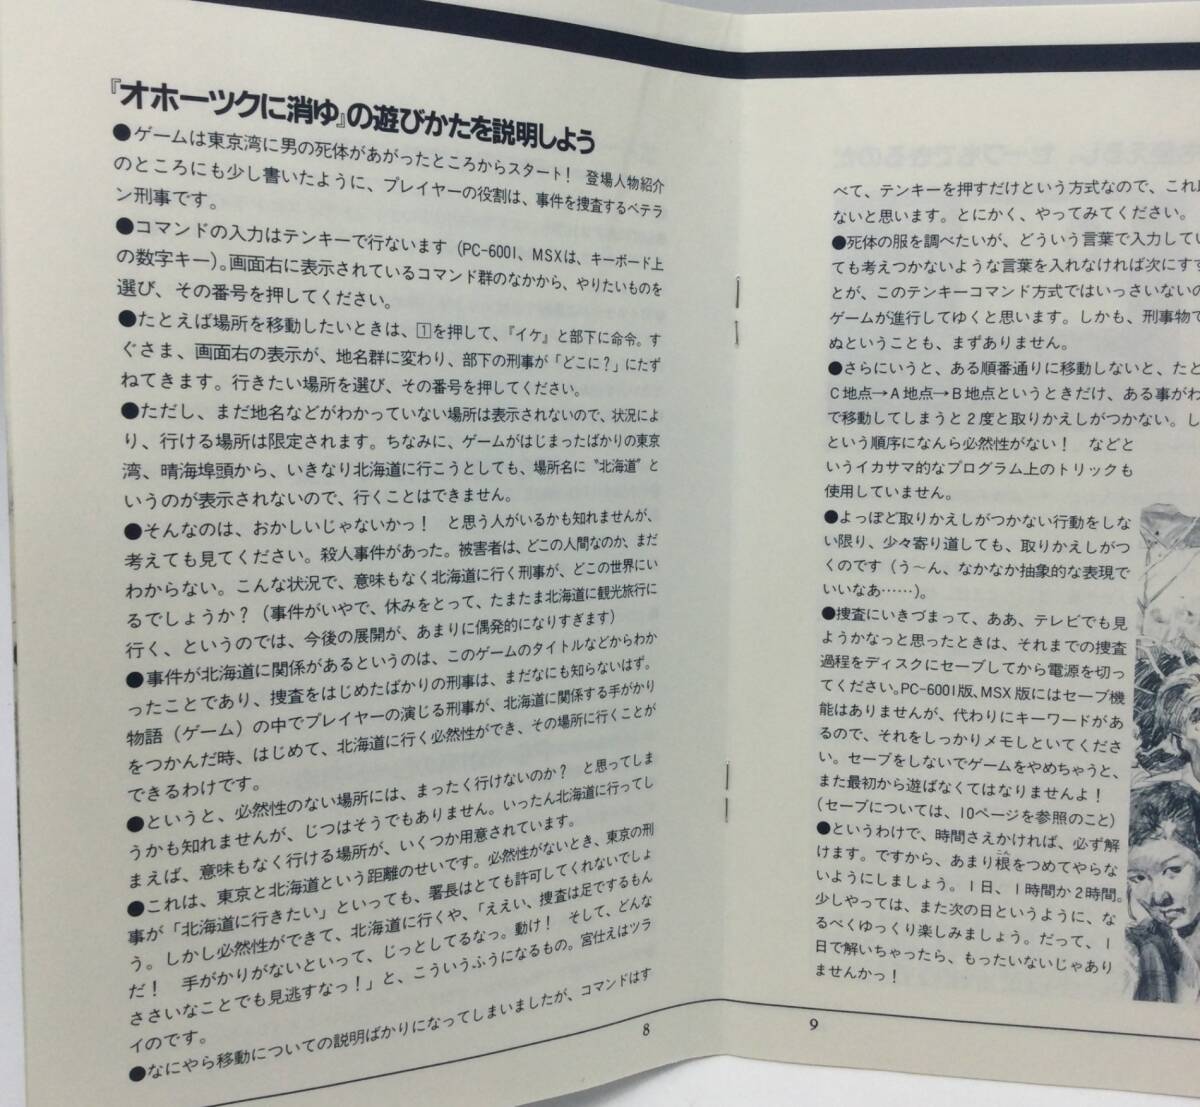 『オホーツクに消ゆ』の遊びかたを説明しよう
●ゲームは東京湾に男の死体があがったところからスタート！　登場人物紹介
のところにも少し書いたように、プレイヤーの役割は、事件を捜査するベテラ
ン刑事です。
●コマンドの入力はテンキーで行ないます（PC-6001、MSXは、キーボード上
の数字キー）。画面右に表示されているコマンド群のなかから、やりたいものを
選び、その番号を押してください。
●たとえば場所を移動したいときは、1を押して、『イケ』と部下に命令。す
ぐさま、画面右の表示が、地名群に変わり、部下の刑事が「どこに？」にたず
ねてきます。行きたい場所を選び、その番号を押してください。
●ただし、まだ地名などがわかっていない場所は表示されないので、状況によ
り、行ける場所は限定されます。ちなみに、ゲームがはじまったばかりの東京
湾、晴海埠頭から、いきなり北海道に行こうとしても、場所名に〝北海道〟と
いうのが表示されないので、行くことはできません。
●そんなのは、おかしいじゃないかっ！　と思う人がいるかも知れませんが、
考えても見てください。殺人事件があった。被害者は、どこの人間なのか、まだ
わからない。こんな状況で、意味もなく北海道に行く刑事が、どこの世界にい
るでしょうか？（事件がいやで、休みをとって、たまたま北海道に観光旅行に
行く、というのでは、今後の展開が、あまりに偶発的になりすぎます）
●事件が北海道に関係があるというのは、このゲームのタイトルなどからわか
ったことであり、捜査をはじめたばかりの刑事は、まだなにも知らないはず。
物語（ゲーム）の中でプレイヤーの演じる刑事が、北海道に関係する手がかり
をつかんだ時、はじめて、北海道に行く必然性ができ、その場所に行くことが
できるわけです。
●というと、必然性のない場所には、まったく行けないのか？　と思ってしま
うかも知れませんが、じつはそうでもありません。いったん北海道に行ってし
まえば、意味もなく行ける場所が、いくつか用意されています。
●これは、東京と北海道という距離のせいです。必然性がないとき、東京の刑
事が「北海道に行きたい」といっても、署長はとても許可してくれないでしょ
う。しかし必然性ができて、北海道に行くや、「ええい、捜査は足でするもん
だ！　手がかりがないといって、じっとしてるなっ。動け！　そして、どんな
ささいなことでも見逃すなっ！」と、こういうふうになるもの。宮仕えはツラ
イのです。
●なにやら移動についての説明ばかりになってしまいましたが、コマンドはす
8
べて、テンキーを押すだけという方式なので、これ
ないと思います。とにかく、やってみてください。
●死体の服を調べたいが、どういう言葉で入力してい
ても考えつかないような言葉を入れなければ次にすす
とが、このテンキーコマンド方式ではいっさいないの
ゲームが進行してゆくと思います。しかも、刑事物で
ぬということも、まずありません。
●さらにいうと、ある順番通りに移動しないと、たと
C地点→A地点→B地点というときだけ、ある事がわ
で移動してしまうと2度と取りかえしがつかない。し
という順序になんら必然性がない！　などと
いうイカサマ的なプログラム上のトリックも
使用していません。
●よっぽど取りかえしがつかない行動をしな
い限り、少々寄り道しても、取りかえしがつ
くのです（う〜ん、なかなか抽象的な表現で
いいなあ……）。
●捜査にいきづまって、ああ、テレビでも見
ようかなっと思ったときは、それまでの捜査
過程をディスクにセーブしてから電源を切っ
てください。PC-6001版、MSX版にはセーブ機
能はありませんが、代わりにキーワードがあ
るので、それをしっかりメモしといてくださ
い。セーブをしないでゲームをやめちゃうと、
また最初から遊ばなくてはなりませんよ！
（セーブについては、10ページを参照のこと）
●というわけで、時間さえかければ、必ず解
けます。ですから、あまり根をつめてやらな
いようにしましょう。1日、1時間か2時間。
少しやっては、また次の日というように、な
るべくゆっくり楽しみましょう。だって、1
日で解いちゃったら、もったいないじゃあり
ませんかっ！
9